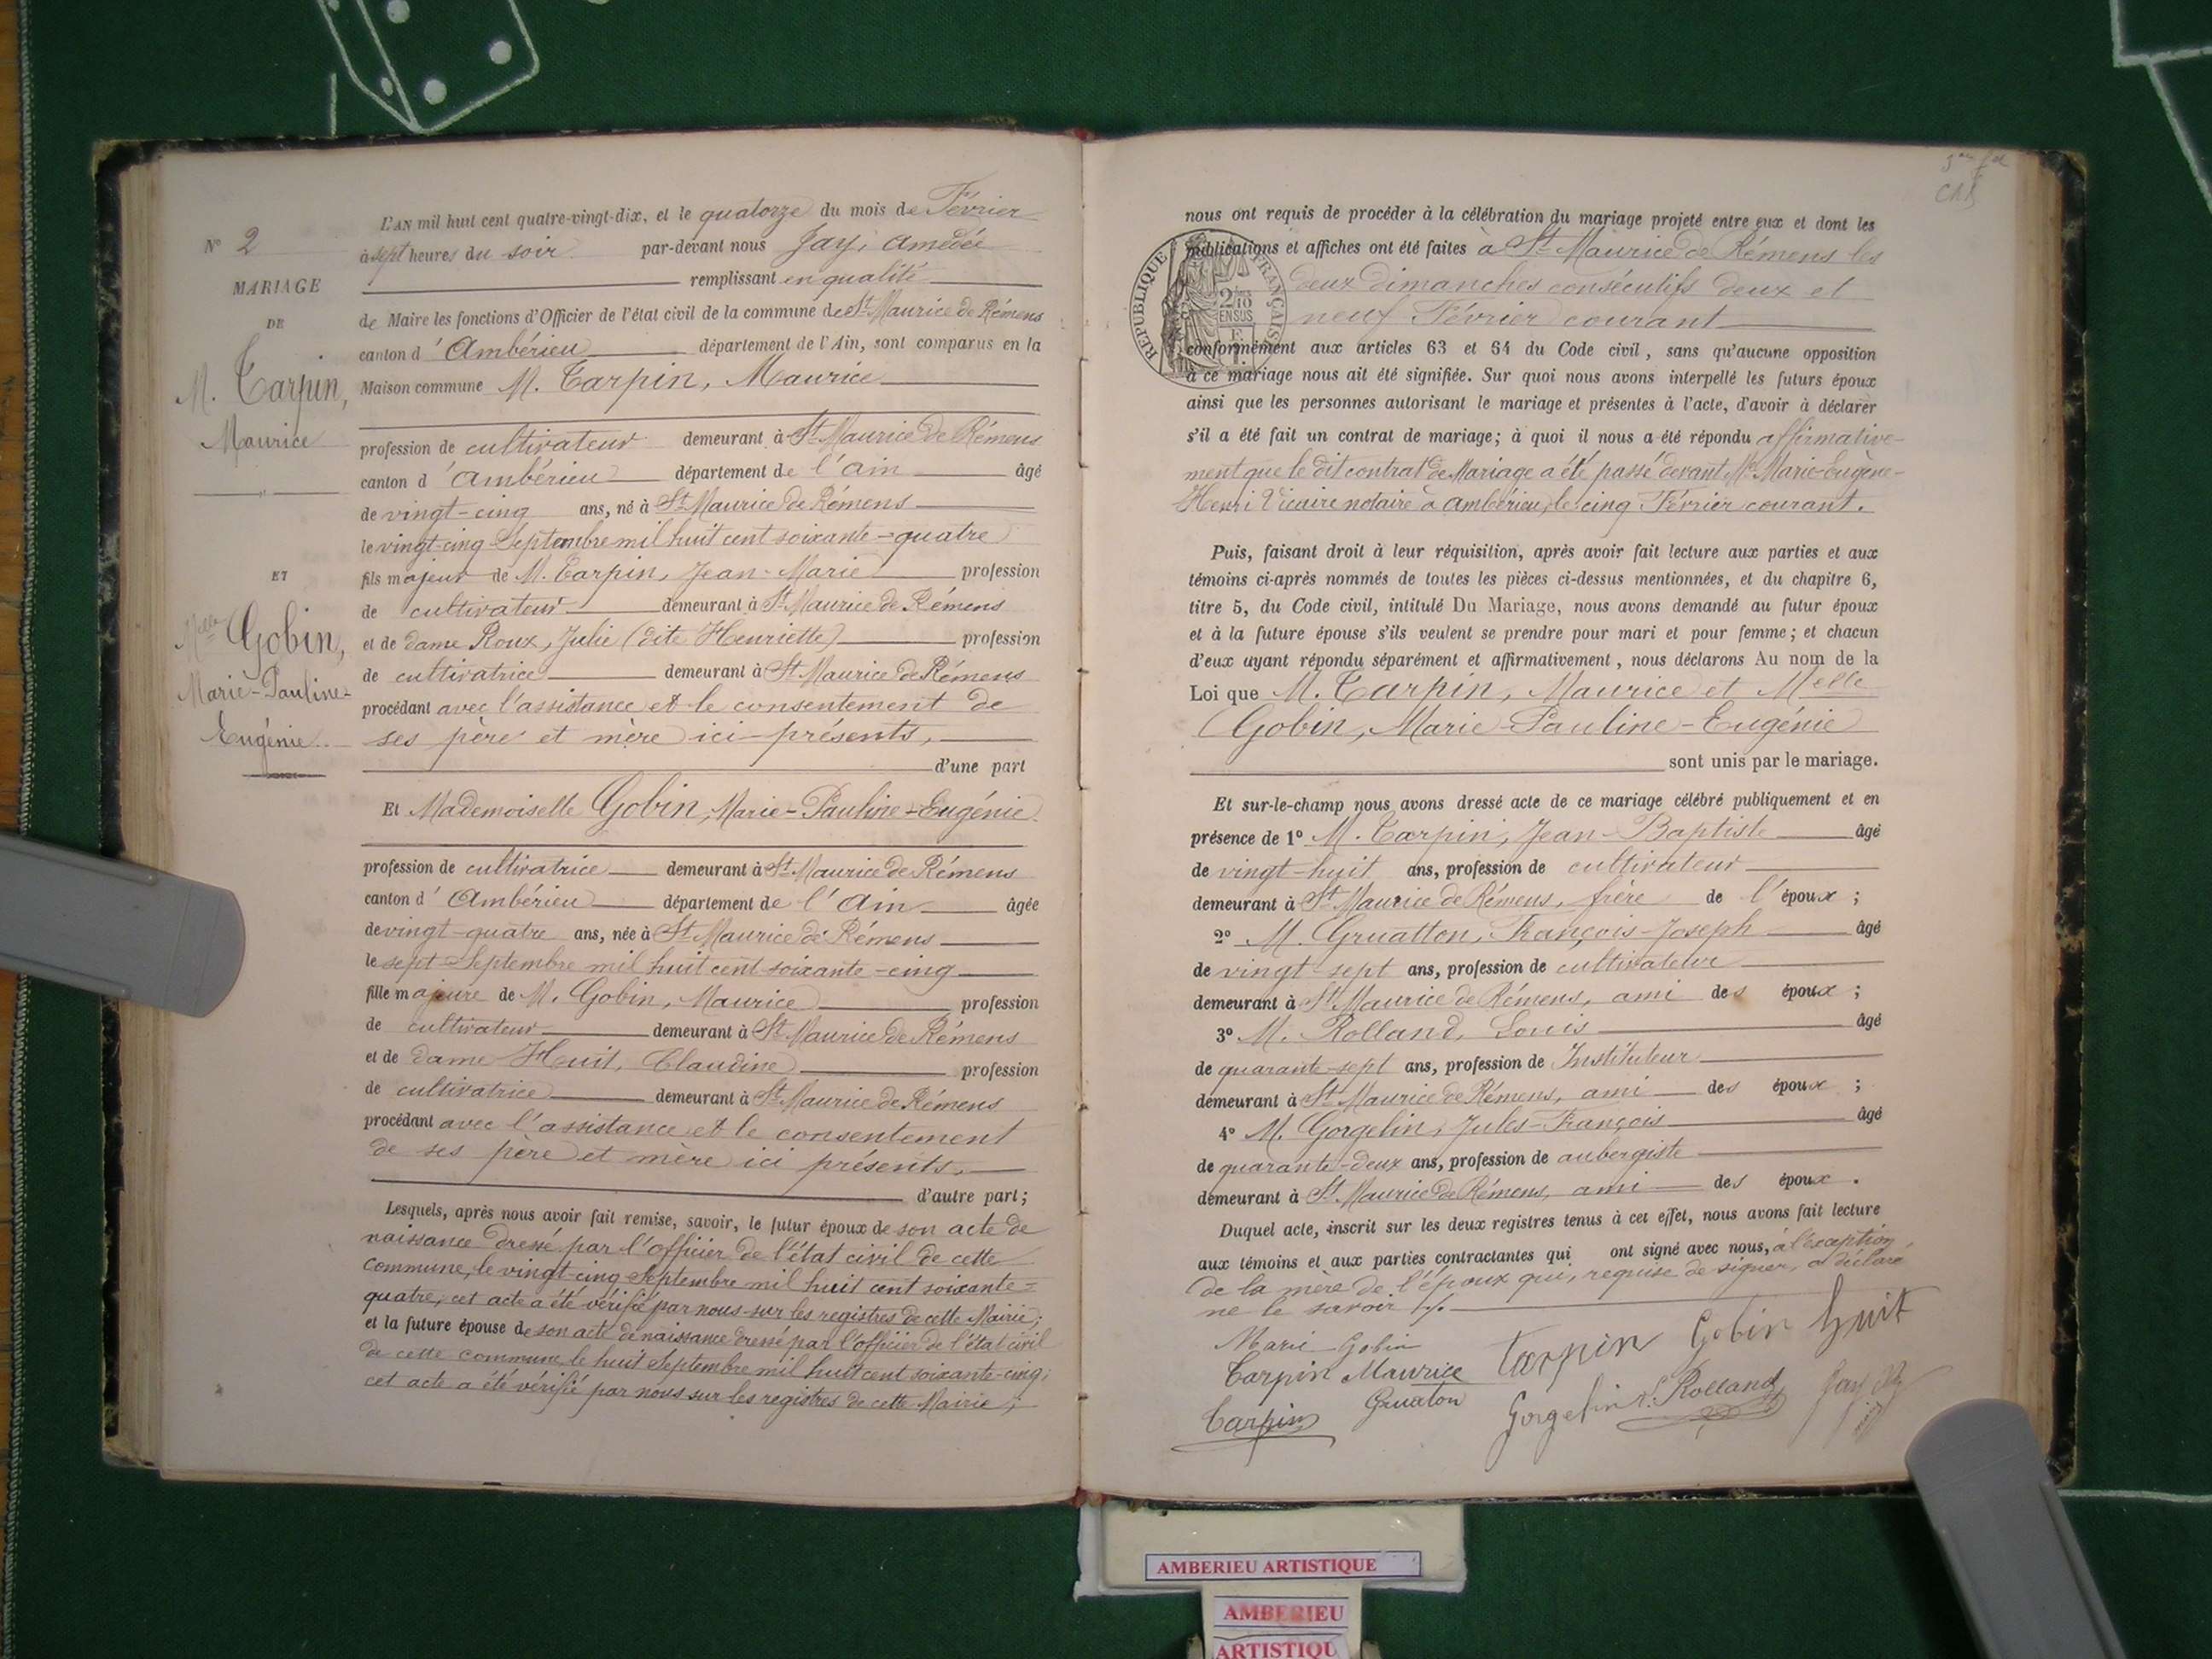 N° 2
MARIAGE
DE
M. Tarpin,
Maurice
ET
Melle Gobin,
Marie-Pauline-
Eugénie
L'AN mil huit cent quatre-vingt-dix, et le quatorze du mois de Février
à sept heures du soir par-devant nous Jay, Amédée
remplissant en qualité
de Maire les fonctions d'Officier de l'état civil de la commune de St Maurice de Rémens
canton d'Ambérieu département de l'Ain, sont comparus en la
Maison commune M. Tarpin, Maurice
profession de cultivateur demeurant à St Maurice de Rémens
canton d'Ambérieu département de l'Ain âgé
de vingt-cinq ans, né à St Maurice de Rémens
le vingt-cinq Septembre mil huit cent soixante-quatre
fils majeur de M. Tarpin, Jean-Marie profession
de cultivateur demeurant à St Maurice de Rémens
et de dame Roux, Julie (dite Henriette) profession
de cultivatrice demeurant à St Maurice de Rémens
procédant avec l'assistance et le consentement de
ses père et mère ici-présents,
d'une part
Et Mademoiselle Gobin, Marie-Pauline-Eugénie
profession de cultivatrice demeurant à St Maurice de Rémens
canton d'Ambérieu département de l'Ain âgée
de vingt-quatre ans, née à St Maurice de Rémens
le sept Septembre mil huit cent soixante-cinq
fille majeure de M. Gobin, Maurice profession
de cultivateur demeurant à St Maurice de Rémens
et de dame Huit, Claudine profession
de cultivatrice demeurant à St Maurice de Rémens
procédant avec l'assistance et le consentement
de ses père et mère ici présents,
d'autre part;
Lesquels, après nous avoir fait remise, savoir, le futur époux de son acte de
naissance dressé par l'officier de l'état civil de cette
commune, le vingt-cinq Septembre mil huit cent soixante-
quatre, cet acte a été vérifié par nous sur les registres de cette Mairie;
et la future épouse de son acte de naissance dressé par l'officier de l'état civil
de cette commune le huit Septembre mil huit cent soixante-cinq;
cet acte a été vérifié par nous sur les registres de cette Mairie;
nous ont requis de procéder à la célébration du mariage projeté entre eux et dont les
publications et affiches ont été faites à St Maurice de Rémens les
deux dimanches consécutifs deux et
neuf Février courant
RÉPUBLIQUE FRANÇAISE
2/10 EN SUS
conformément aux articles 63 et 64 du Code civil, sans qu'aucune opposition
à ce mariage nous ait été signifiée. Sur quoi nous avons interpellé les futurs époux
ainsi que les personnes autorisant le mariage et présentes à l'acte, d'avoir à déclarer
s'il a été fait un contrat de mariage; à quoi il nous a été répondu affirmative-
ment que le dit contrat de Mariage a été passé devant Me Marie-Eugène-
Henri Vicaire notaire à Ambérieu, le cinq Février courant.
Puis, faisant droit à leur réquisition, après avoir fait lecture aux parties et aux
témoins ci-après nommés de toutes les pièces ci-dessus mentionnées, et du chapitre 6,
titre 5, du Code civil, intitulé Du Mariage, nous avons demandé au futur époux
et à la future épouse s'ils veulent se prendre pour mari et pour femme; et chacun
d'eux ayant répondu séparément et affirmativement, nous déclarons Au nom de la
Loi que M. Tarpin, Maurice et Melle
Gobin, Marie-Pauline-Eugénie
sont unis par le mariage.
Et sur-le-champ nous avons dressé acte de ce mariage célébré publiquement et en
présence de 1° M. Tarpin, Jean-Baptiste âgé
de vingt-huit ans, profession de cultivateur
demeurant à St Maurice de Rémens, frère de l'époux;
2° M. Gruatton, François-Joseph âgé
de vingt-sept ans, profession de cultivateur
demeurant à St Maurice de Rémens, ami des époux;
3° M. Rolland, Louis âgé
de quarante-sept ans, profession de Instituteur
demeurant à St Maurice de Rémens, ami des époux;
4° M. Gorgelin, Jules-François âgé
de quarante-deux ans, profession de aubergiste
demeurant à St Maurice de Rémens, ami des époux.
Duquel acte, inscrit sur les deux registres tenus à cet effet, nous avons fait lecture
aux témoins et aux parties contractantes qui ont signé avec nous, à l'exception
de la mère de l'époux qui, requise de signer, a déclaré
ne le savoir ./.
Marie Gobin
Tarpin Maurice Tarpin Gobin Huit
Tarpin Gruaton Gorgelin L. Rolland Jay
AMBERIEU ARTISTIQUE
AMBERIEU
ARTISTIQU